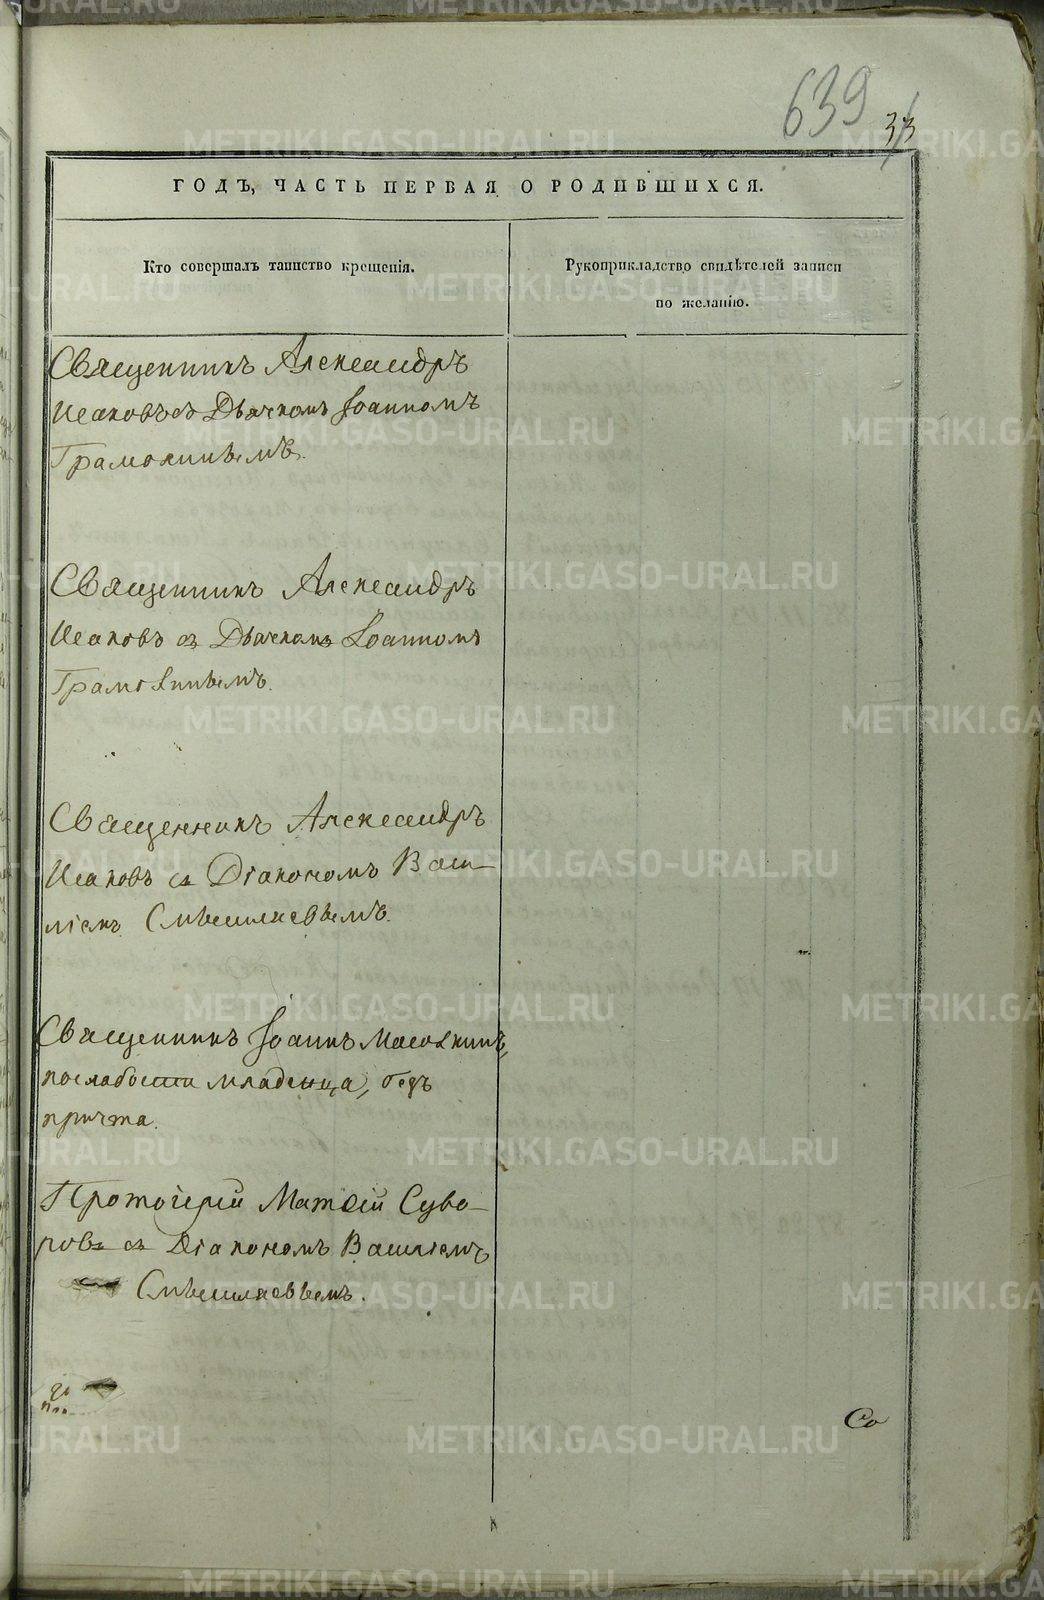 639
33
ГОДЪ, ЧАСТЬ ПЕРВАЯ О РОДИВШИХСЯ.
Кто совершалъ таинство крещенія.
Рукоприкладство свидѣтелей записи
по желанію.
Священникъ Александръ
Исаковъ съ Дьячкомъ Іоанномъ
Грамолинымъ.
Священникъ Александръ
Исаковъ съ Дьячкомъ Іоанномъ
Священникъ Александръ
Исаковъ съ Діакономъ Васи-
ліемъ Смышляевымъ.
Священникъ Іоаннъ
по слабости младенца, безъ
причта.
Протоіерей Матѳей Суво-
ровъ съ Діакономъ Василіемъ
Смышляевымъ.
Со
METRIKI.GASO-URAL.RU